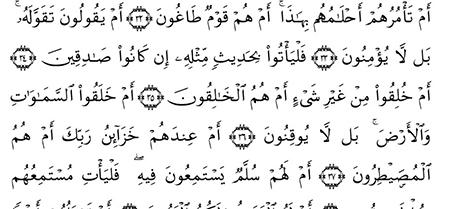 أَمْ تَأْمُرُهُمْ أَحْلَـٰمُهُم بِهَـٰذَآ ۚ أَمْ هُمْ قَوْمٌ طَاغُونَ ﴿٣٢﴾ أَمْ يَقُولُونَ تَقَوَّلَهُۥ ۚ
بَل لَّا يُؤْمِنُونَ ﴿٣٣﴾ فَلْيَأْتُوا۟ بِحَدِيثٍ مِّثْلِهِۦٓ إِن كَانُوا۟ صَـٰدِقِينَ ﴿٣٤﴾
أَمْ خُلِقُوا۟ مِنْ غَيْرِ شَىْءٍ أَمْ هُمُ ٱلْخَـٰلِقُونَ ﴿٣٥﴾ أَمْ خَلَقُوا۟ ٱلسَّمَـٰوَٰتِ
وَٱلْأَرْضَ ۚ بَل لَّا يُوقِنُونَ ﴿٣٦﴾ أَمْ عِندَهُمْ خَزَآئِنُ رَبِّكَ أَمْ هُمُ
ٱلْمُصَۣيْطِرُونَ ﴿٣٧﴾ أَمْ لَهُمْ سُلَّمٌ يَسْتَمِعُونَ فِيهِ ۖ فَلْيَأْتِ مُسْتَمِعُهُم